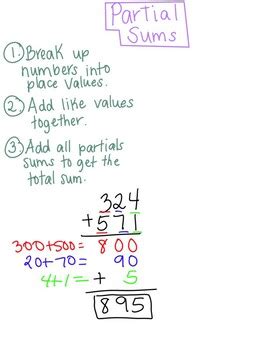 Partial
Sums
1. Break up
numbers into
place values.
2. Add like values
together.
3. Add all partials
sums to get the
total sum.
324
+571
300+500= 800
20+70= 90
4+1= + 5
895